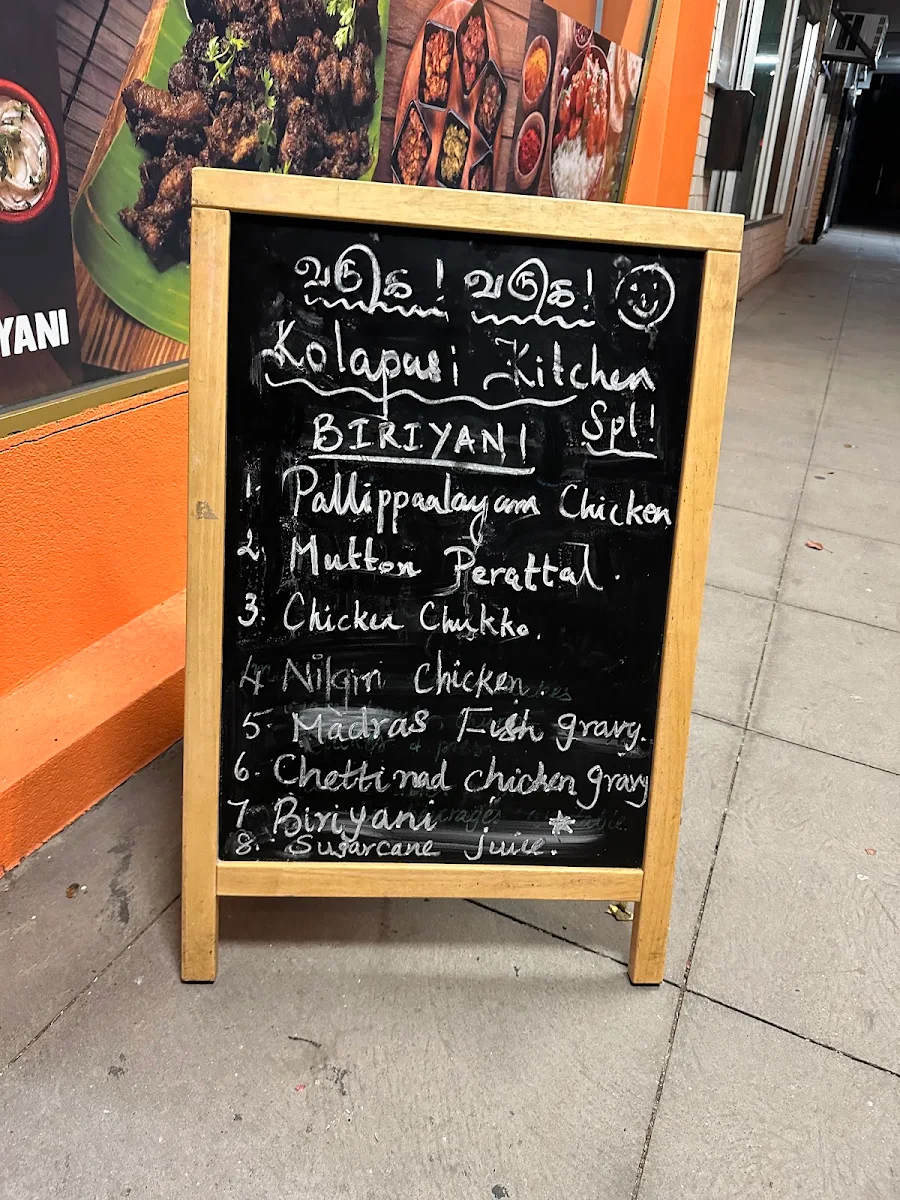 YANI
வருக! வருக!
Kolapasi Kitchen
BIRIYANI Spl!
1. Pallippaalayam Chicken
2. Mutton Perattal.
3. Chicken Chukko.
4 Nilgiri Chicken.
5. Madras Fish gravy.
6. Chettinad chicken gravy
7 Biriyani
8. Sugarcane juice.